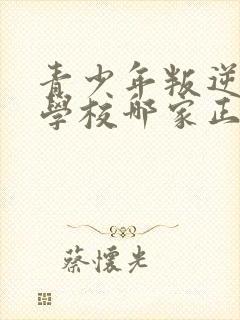 青少年叛逆
學校哪家正
蔡懷光